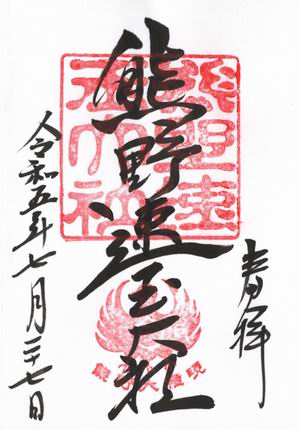 奉拝
熊野速玉大社
令和五年七月二十七日
熊野速玉大社